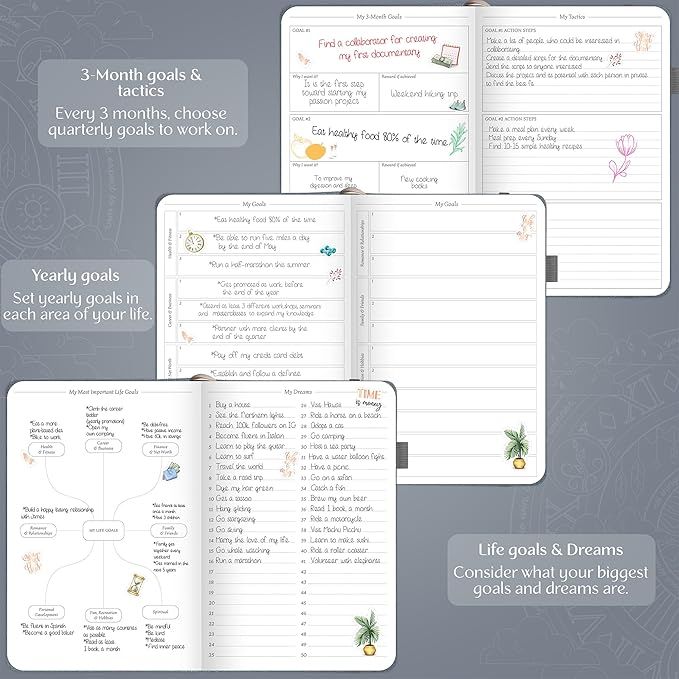 3-Month goals &
tactics
Every 3 months, choose
quarterly goals to work on.
My 3-Month Goals
GOAL #1
Find a collaborator for creating
my first documentary
Why I want it?
It is the first step
toward starting my
passion project
Reward if achieved
Weekend hiking trip
GOAL #2
Eat healthy food 80% of the time
Why I want it?
To improve my
digestion and
Reward if achieved
New cooking
books
My Tactics
GOAL #1 ACTION STEPS
Make a list of people who could be interested in
collaborating
Create a detailed script for the documentary
Send the script to anyone interested
Discuss the project and its potential with each person in private
to find the best fit
GOAL #2 ACTION STEPS
Make a meal plan every week
Meal prep every Sunday
Find 10-15 simple healthy recipes
Yearly goals
Set yearly goals in
each area of your life.
My Goals
Health & Fitness
1
*Eat healthy food 80% of the time
2
*Be able to run five miles a day
by the end of May
3
*Run a half-marathon this summer
Career & Business
1
*Get promoted at work before
the end of the year
2
*Attend at least 3 different workshops, seminars
and masterclasses to expand my knowledge
3
*Partner with more clients by the
end of the quarter
1
*Pay off my credit card debt
2
*Establish and follow a definitee
My Goals
Romance & Relationships
1
2
3
Family & Friends
1
2
3
1
2
My Most Important Life Goals
*Eat a more
plant-based diet
*Bike to work
Health
& Fitness
*Climb the career
ladder
(yearly promotions)
*Open my
own company
Career &
Business
*Be debt-free
*Have passive income
*Have 10k in savings
Finance
& Net Worth
*Build a happy lasting relationship
with James
Romance
& Relationships
MY LIFE GOALS
*See friends at least
once a month
*Have 3 children
Family
& Friends
*Family gets
together every
weekend
*Get married in the
next 5 years
Personal
Development
*Be fluent in Spanish
*Become a good baker
Fun, Recreation
& Hobbies
*Visit as many countries
as possible
*Read at least
1 book a month
Spiritual
*Be mindful
*Be kind
*Meditate
*Find inner peace
My Dreams
TIME
is money
1 Buy a house
2 See the Northern lights
3 Reach 100k followers on IG
4 Become fluent in Italian
5 Learn to play the guitar
6 Learn to surf
7 Travel the world
8 Take a road trip
9 Dye my hair green
10 Get a tattoo
11 Hang gliding
12 Go stargazing
13 Go skiing
14 Marry the love of my life
15 Go whale watching
16 Run a marathon
17
18
19
20
21
22
23
24
25
26 Visit
27 Ride a horse on a beach
28 Adopt a cat
29 Go camping
30 Host a tea party
31 Have a water balloon fight
32 Have a picnic
33 Go on a safari
34 Catch a fish
35 Brew my own beer
36 Read 1 book a month
37 Ride a motorcycle
38 Visit Machu Picchu
39 Learn to make sushi
40 Ride a roller coaster
41 Volunteer with elephants
42
43
44
45
46
47
48
49
50
Life goals & Dreams
Consider what your biggest
goals and dreams are.